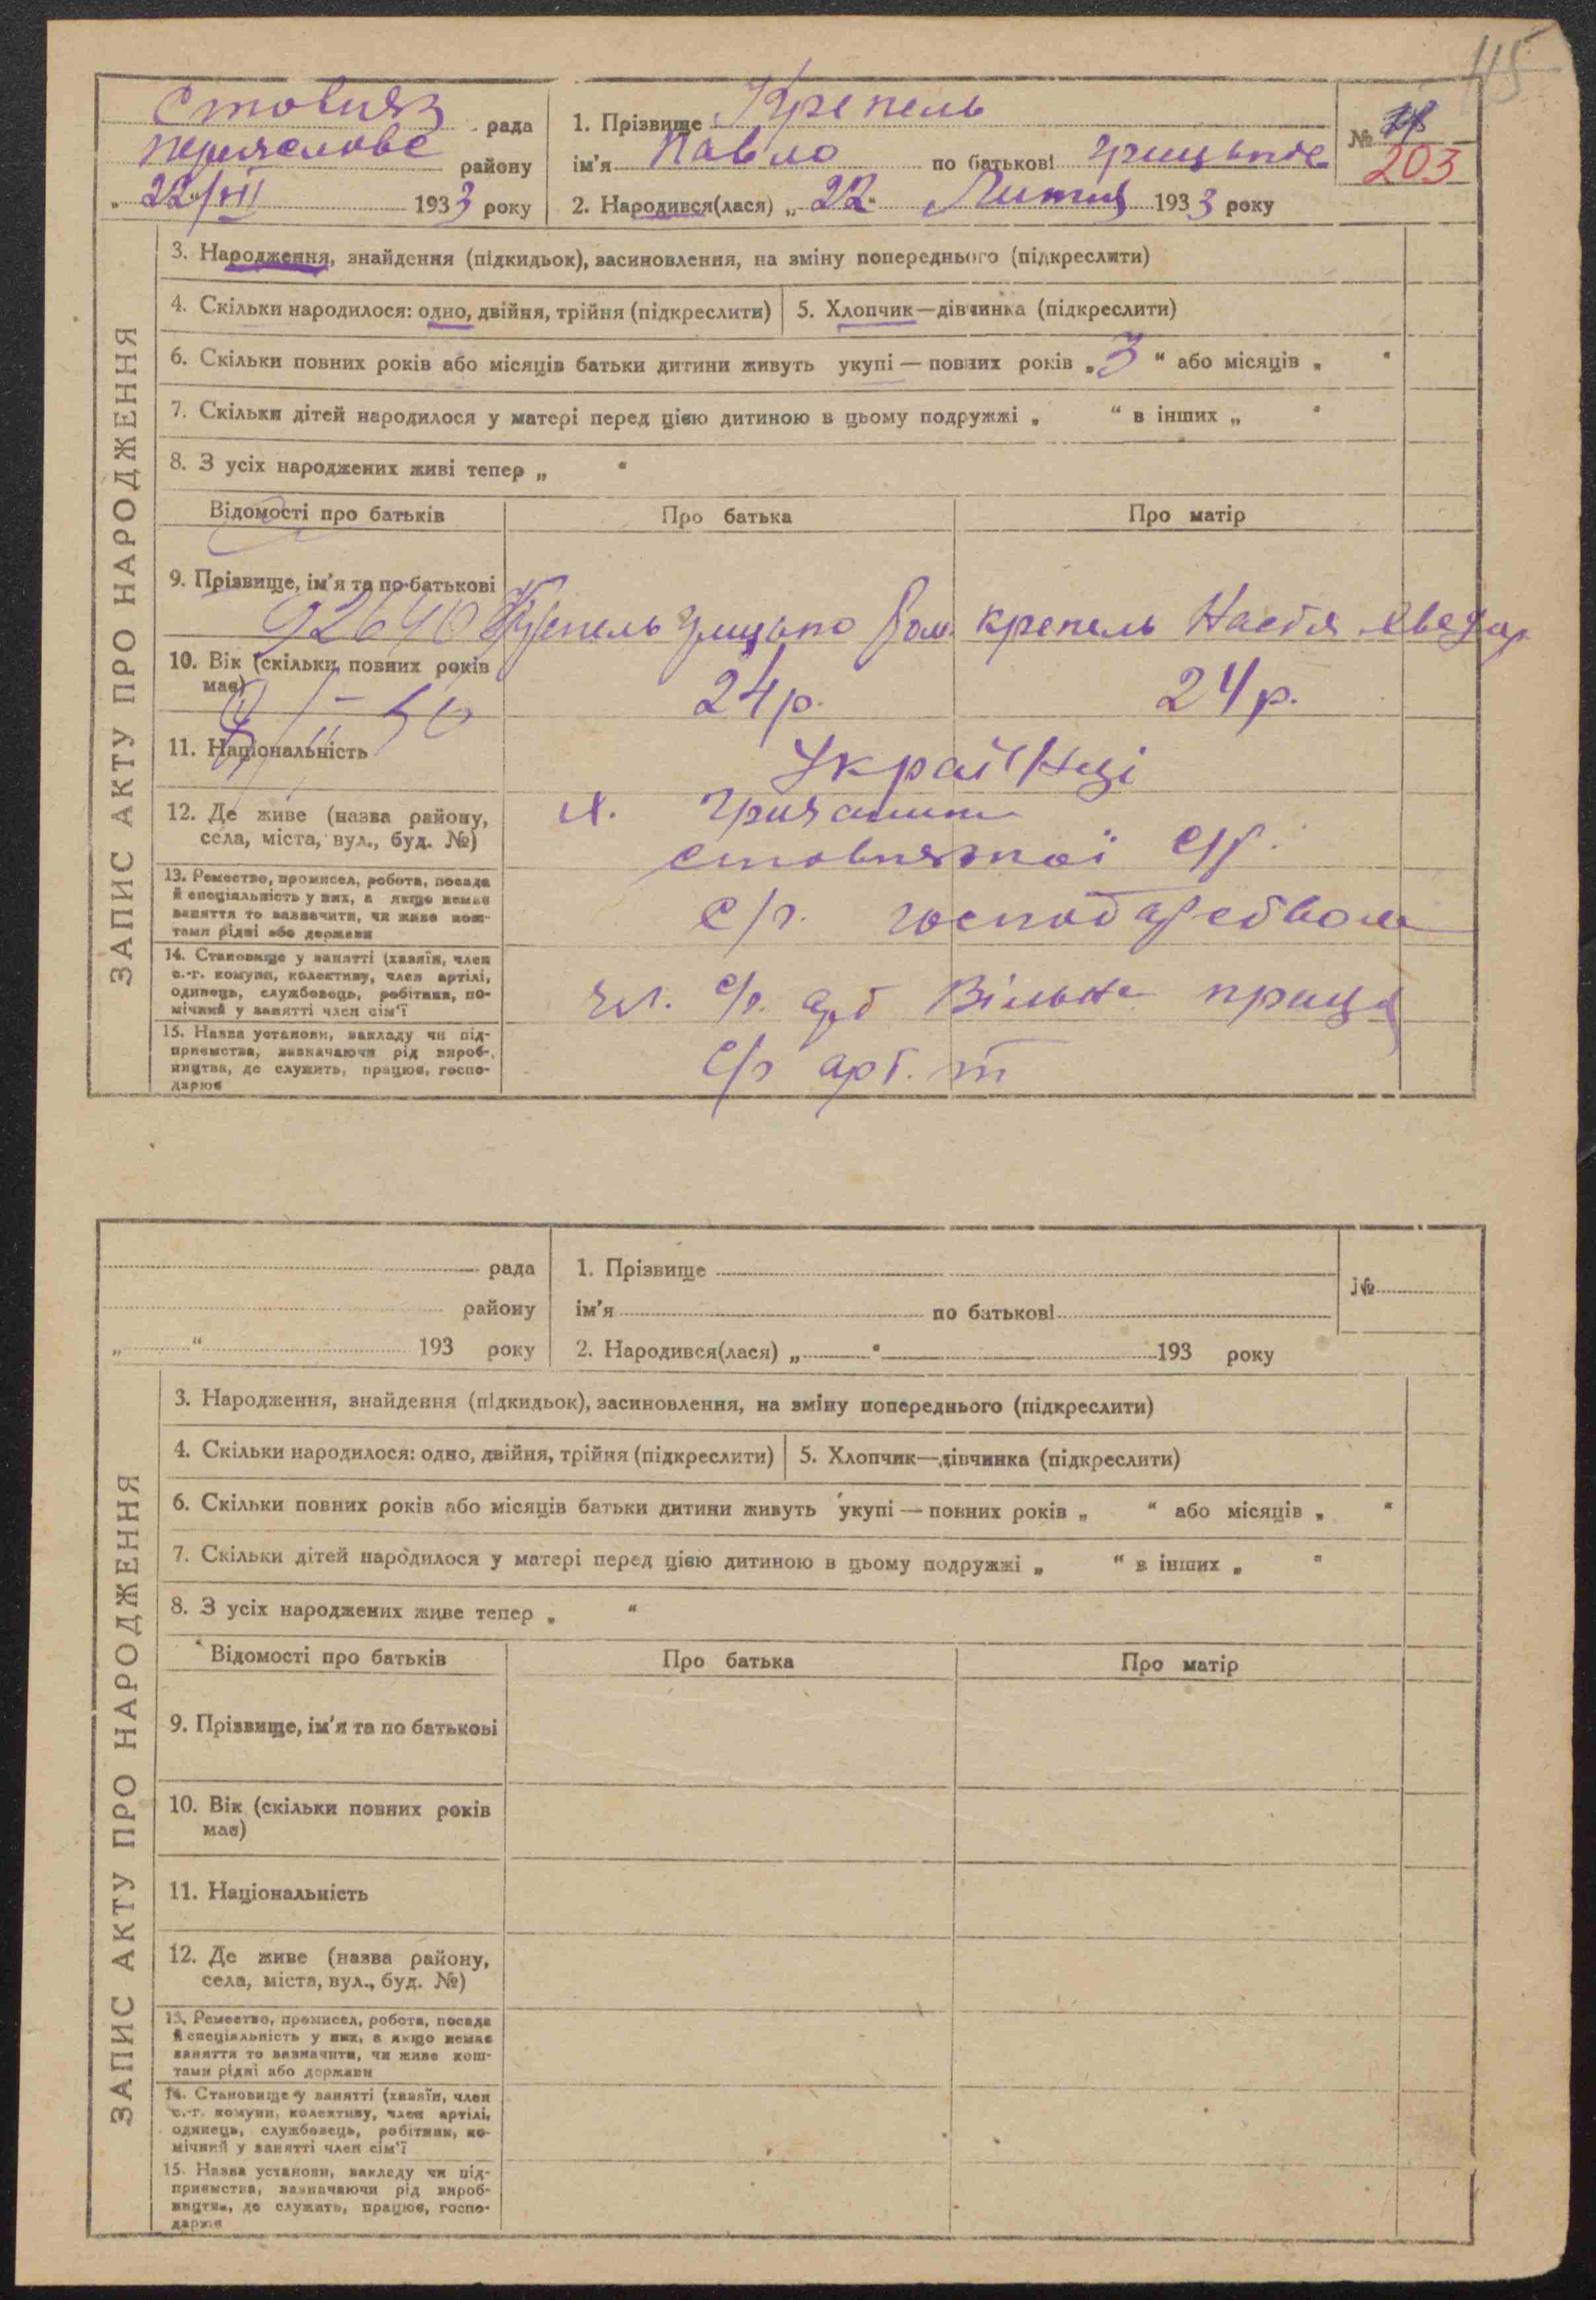 115
Стовпяз рада
Переяслове району
„ 22/VII 1933 року
1. Прізвище Крепель
ім'я Павло по батькові Грицьков
2. Народився(лася) „ 22 " Липня 1933 року
№
203
ЗАПИС АКТУ ПРО НАРОДЖЕННЯ
3. Народження, знайдення (підкидьок), засиновлення, на зміну попереднього (підкреслити)
4. Скільки народилося: одно, двійня, трійня (підкреслити)
5. Хлопчик—дівчинка (підкреслити)
6. Скільки повних років або місяців батьки дитини живуть укупі — повних років „ 3 " або місяців „ "
7. Скільки дітей народилося у матері перед цією дитиною в цьому подружжі „ " в інших „ "
8. З усіх народжених живі тепер „ "
Відомості про батьків
Про батька
Про матір
9. Прізвище, ім'я та по-батькові
Крепель Грицько Ром.
Крепель Настя Явдох
10. Вік (скільки повних років
має)
24 р.
24 р.
11. Національність
Українці
12. Де живе (назва району,
села, міста, вул., буд. №)
х.
Стовпязької с/р.
13. Ремество, промисел, робота, посада
й спеціальність у них, а якщо немає
заняття то зазначити, чи живе кош-
тами рідні або держави
с/г. господарством
14. Становище у занятті (хазяїн, член
с.-г. комуни, колективу, член артілі,
одинець, службовець, робітник, по-
мічний у занятті член сім'ї
чл. с/г. арт Вільна праця
15. Назва установи, закладу чи під-
приємства, зазначаючи рід вироб-
ництва, де служить, працює, госпо-
дарює
с/г арт. т
рада
району
„ " 193 року
1. Прізвище
ім'я по батькові
2. Народився(лася) „ " 193 року
№
ЗАПИС АКТУ ПРО НАРОДЖЕННЯ
3. Народження, знайдення (підкидьок), засиновлення, на зміну попереднього (підкреслити)
4. Скільки народилося: одно, двійня, трійня (підкреслити)
5. Хлопчик—дівчинка (підкреслити)
6. Скільки повних років або місяців батьки дитини живуть укупі — повних років „ " або місяців „ "
7. Скільки дітей народилося у матері перед цією дитиною в цьому подружжі „ " в інших „ "
8. З усіх народжених живе тепер „ "
Відомості про батьків
Про батька
Про матір
9. Прізвище, ім'я та по батькові
10. Вік (скільки повних років
має)
11. Національність
12. Де живе (назва району,
села, міста, вул., буд. №)
13. Ремество, промисел, робота, посада
й спеціальність у них, а якщо немає
заняття то зазначити, чи живе кош-
тами рідні або держави
14. Становище у занятті (хазяїн, член
с.-г. комуни, колективу, член артілі,
одинець, службовець, робітник, по-
мічний у занятті член сім'ї
15. Назва установи, закладу чи під-
приємства, зазначаючи рід вироб-
ництва, де служить, працює, госпо-
дарює